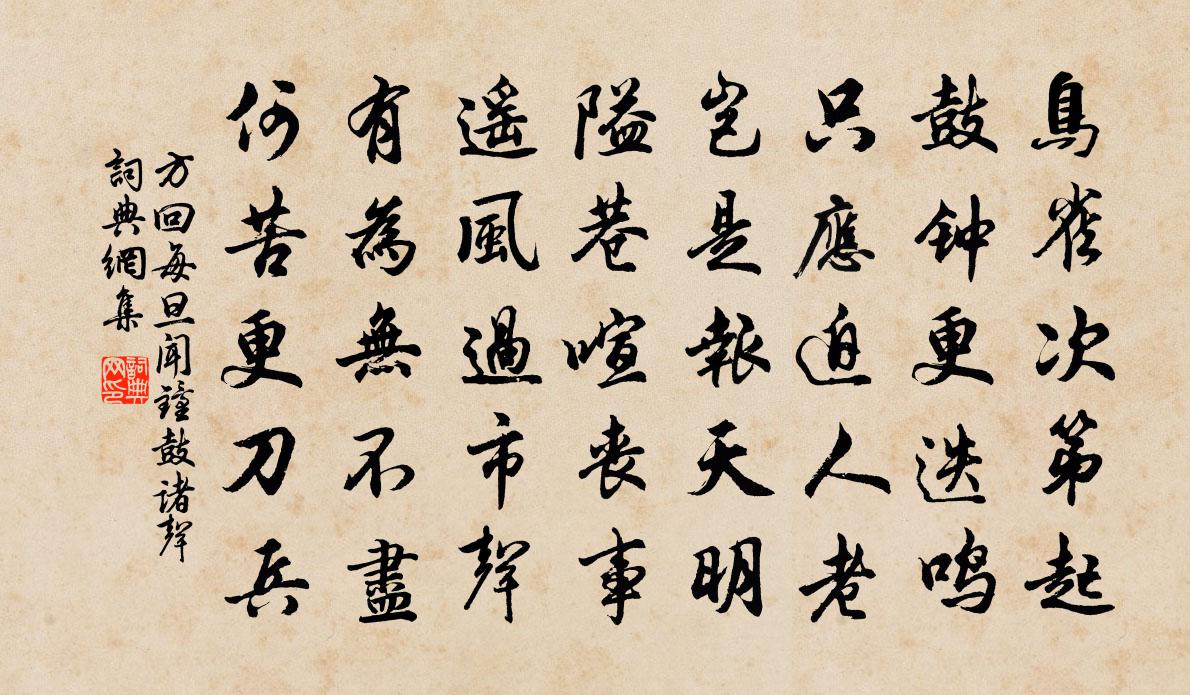 鳥雀次第起
鼓钟更迭鸣
只應迫人老
豈是報天明
隘巷喧喪事
遥風過市聲
有為無不盡
何苦更刀兵
方回每旦聞鐘鼓諸聲
詞典網集
詞典网印